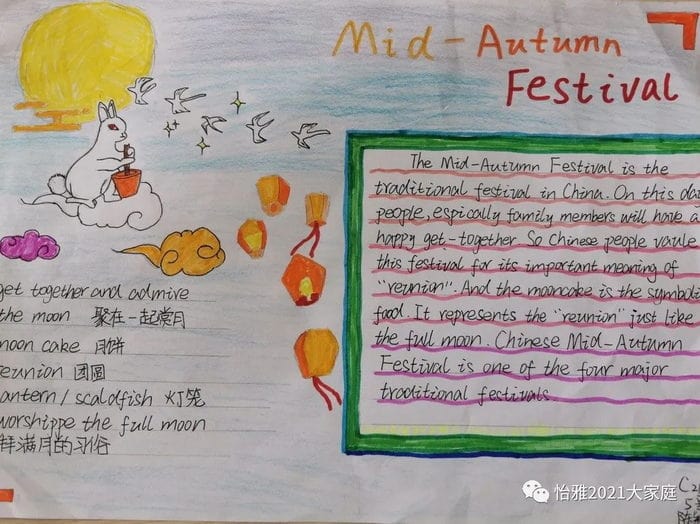 Mid-Autumn
Festival
The Mid-Autumn Festival is the
traditional festival in China. On this da
people, espically family members will have a
happy get-together So Chinese people vaule
this festival for its important meaning of
"reunion". And the mooncake is the symboli
food. It represents the "reunion" just like
the full moon. Chinese Mid-Autumn
Festival is one of the four major
traditional festivals.
get together and admire
the moon 聚在一起赏月
moon cake 月饼
reunion 团圆
lantern / scaldfish 灯笼
worshippe the full moon
拜满月的习俗
怡雅2021大家庭